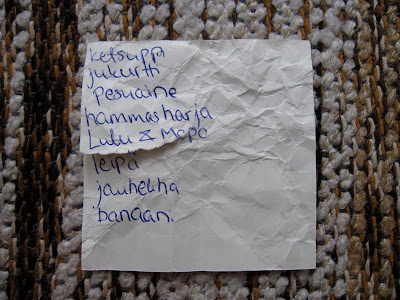 ketsuppi
jukurtti
pesuaine
hammasharja
Lulu & Mopo
leipä
jauheliha
banaani